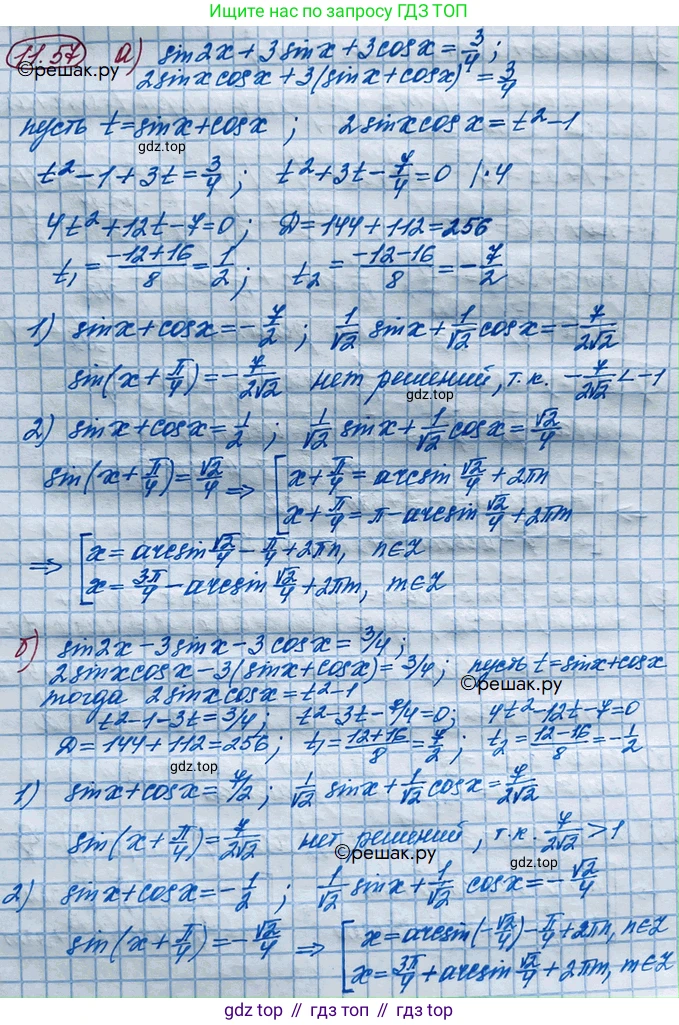 Больше решений на нашем сайте gdz.top
11.57 а) sin2x + 3sinx + 3cosx = 3/4;
©решак.ру
2sinxcosx + 3(sinx + cosx) = 3/4
пусть t = sinx + cosx ; 2sinxcosx = t² - 1
gdz.top
t² - 1 + 3t = 3/4; t² + 3t - 7/4 = 0 |·4
4t² + 12t - 7 = 0; D = 144 + 112 = 256
t₁ = (-12+16)/8 = 1/2; t₂ = (-12-16)/8 = -7/2
1) sinx + cosx = -7/2 ; 1/√2 sinx + 1/√2 cosx = -7/(2√2)
sin(x + π/4) = -7/(2√2) нет решений, т.к. -7/(2√2) < -1
gdz.top
2) sinx + cosx = 1/2 ; 1/√2 sinx + 1/√2 cosx = √2/4
sin(x + π/4) = √2/4 ⇒ [x + π/4 = arcsin √2/4 + 2πn
x + π/4 = π - arcsin √2/4 + 2πm
⇒ [x = arcsin √2/4 - π/4 + 2πn, n∈Z
x = 3π/4 - arcsin √2/4 + 2πm, m∈Z
б) sin2x - 3sinx - 3cosx = 3/4;
2sinxcosx - 3(sinx + cosx) = 3/4; пусть t = sinx + cosx
©решак.ру
тогда 2sinxcosx = t² - 1
t² - 1 - 3t = 3/4; t² - 3t - 7/4 = 0; 4t² - 12t - 7 = 0
D = 144 + 112 = 256 ; t₁ = (12+16)/8 = 7/2 ; t₂ = (12-16)/8 = -1/2
gdz.top
1) sinx + cosx = 7/2 ; 1/√2 sinx + 1/√2 cosx = 7/(2√2)
sin(x + π/4) = 7/(2√2) нет решений, т.к. 7/(2√2) > 1
©решак.ру
gdz.top
2) sinx + cosx = -1/2 ; 1/√2 sinx + 1/√2 cosx = -√2/4
sin(x + π/4) = -√2/4 ⇒ [x = arcsin(-√2/4) - π/4 + 2πn, n∈Z
x = 3π/4 + arcsin √2/4 + 2πm, m∈Z
gdz.top // гдз.топ // gdz.top // гдз.топ // gdz.top